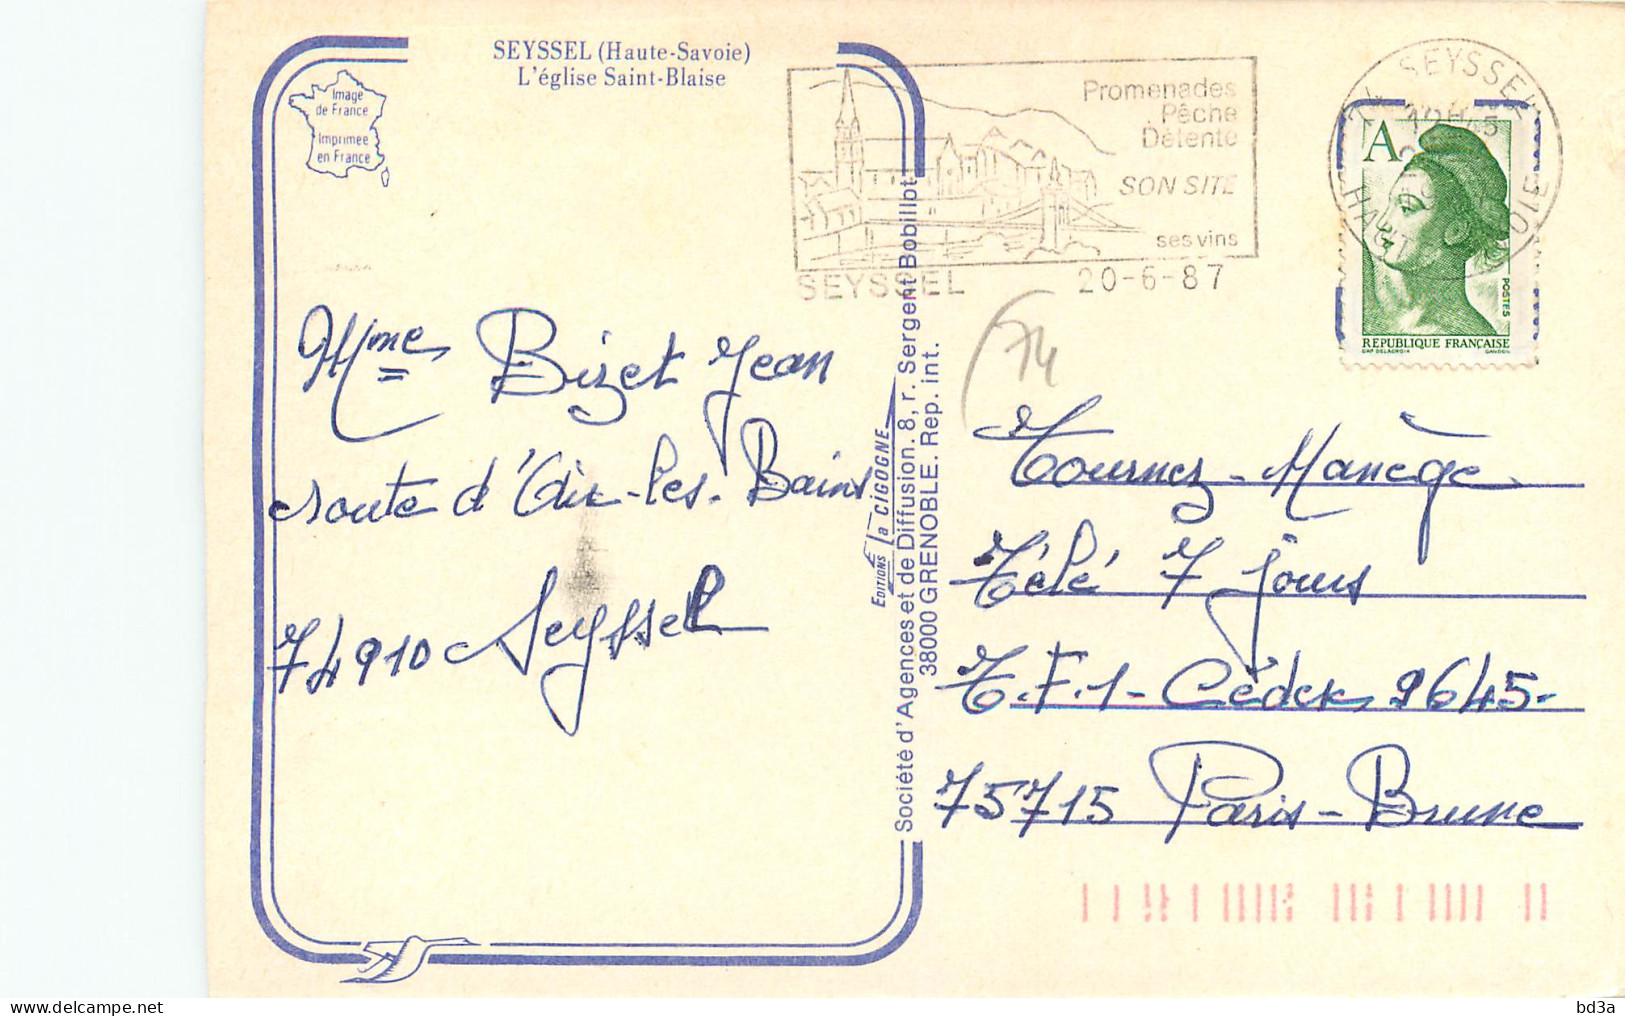 SEYSSEL (Haute-Savoie)
L'église Saint-Blaise
Image
de France
Imprimée
en France
Promenades
Pêche
Détente
SON SITE
ses vins
SEYSSEL 20-6-87
SEYSSEL
A
POSTES
REPUBLIQUE FRANÇAISE
DAP DELACROIX GANDON
74
Mme Bizet Jean
route d'Aix-les-Bains
74910 Seyssel
EDITIONS la CIGOGNE
Société d'Agences et de Diffusion. 8, r. Sergent Bobillot
38000 GRENOBLE. Rep. int.
Tournez-Manège
Télé 7 jours
T.F.1- Cédex 9645-
75715 Paris-Brune
bd3a